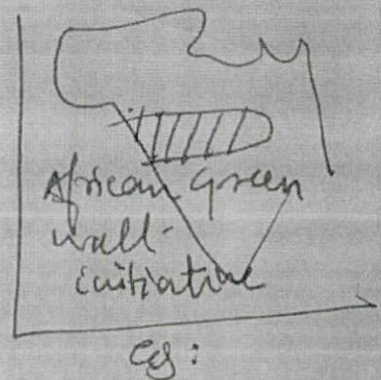 African Green
wall-
initiative
eg: